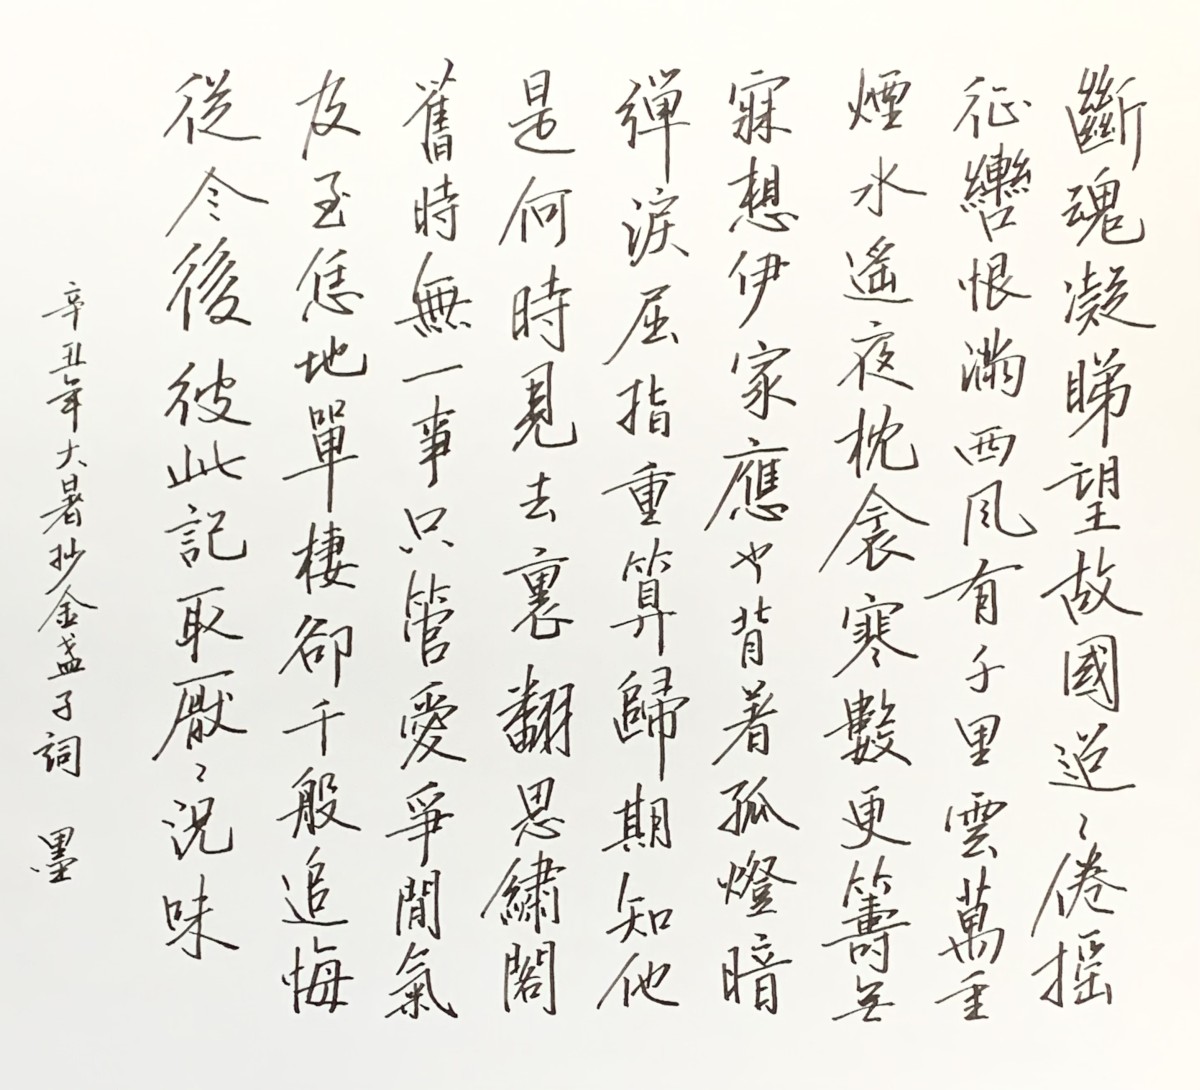 斷魂凝睇望故國迢〻倦搖
征轡恨滿西風有千里雲萬重
煙水遙夜枕衾寒數更籌無
寐想伊家應也背著孤燈暗
彈淚屈指重算歸期知他
是何時見去裏翻思繡閣
舊時無一事只管愛爭閒氣
及至恁地單棲卻千般追悔
從今後彼此記取厭〻況味
辛丑年大暑抄金盞子詞 墨